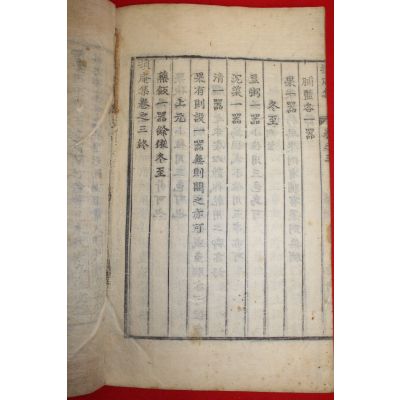 脯醢各一器
果一器
冬至
豆粥一器
沉菜一器
清一器
果有則設一器無則闕之亦可
上元
藥飯一器餘倣冬至
庵集卷之三終